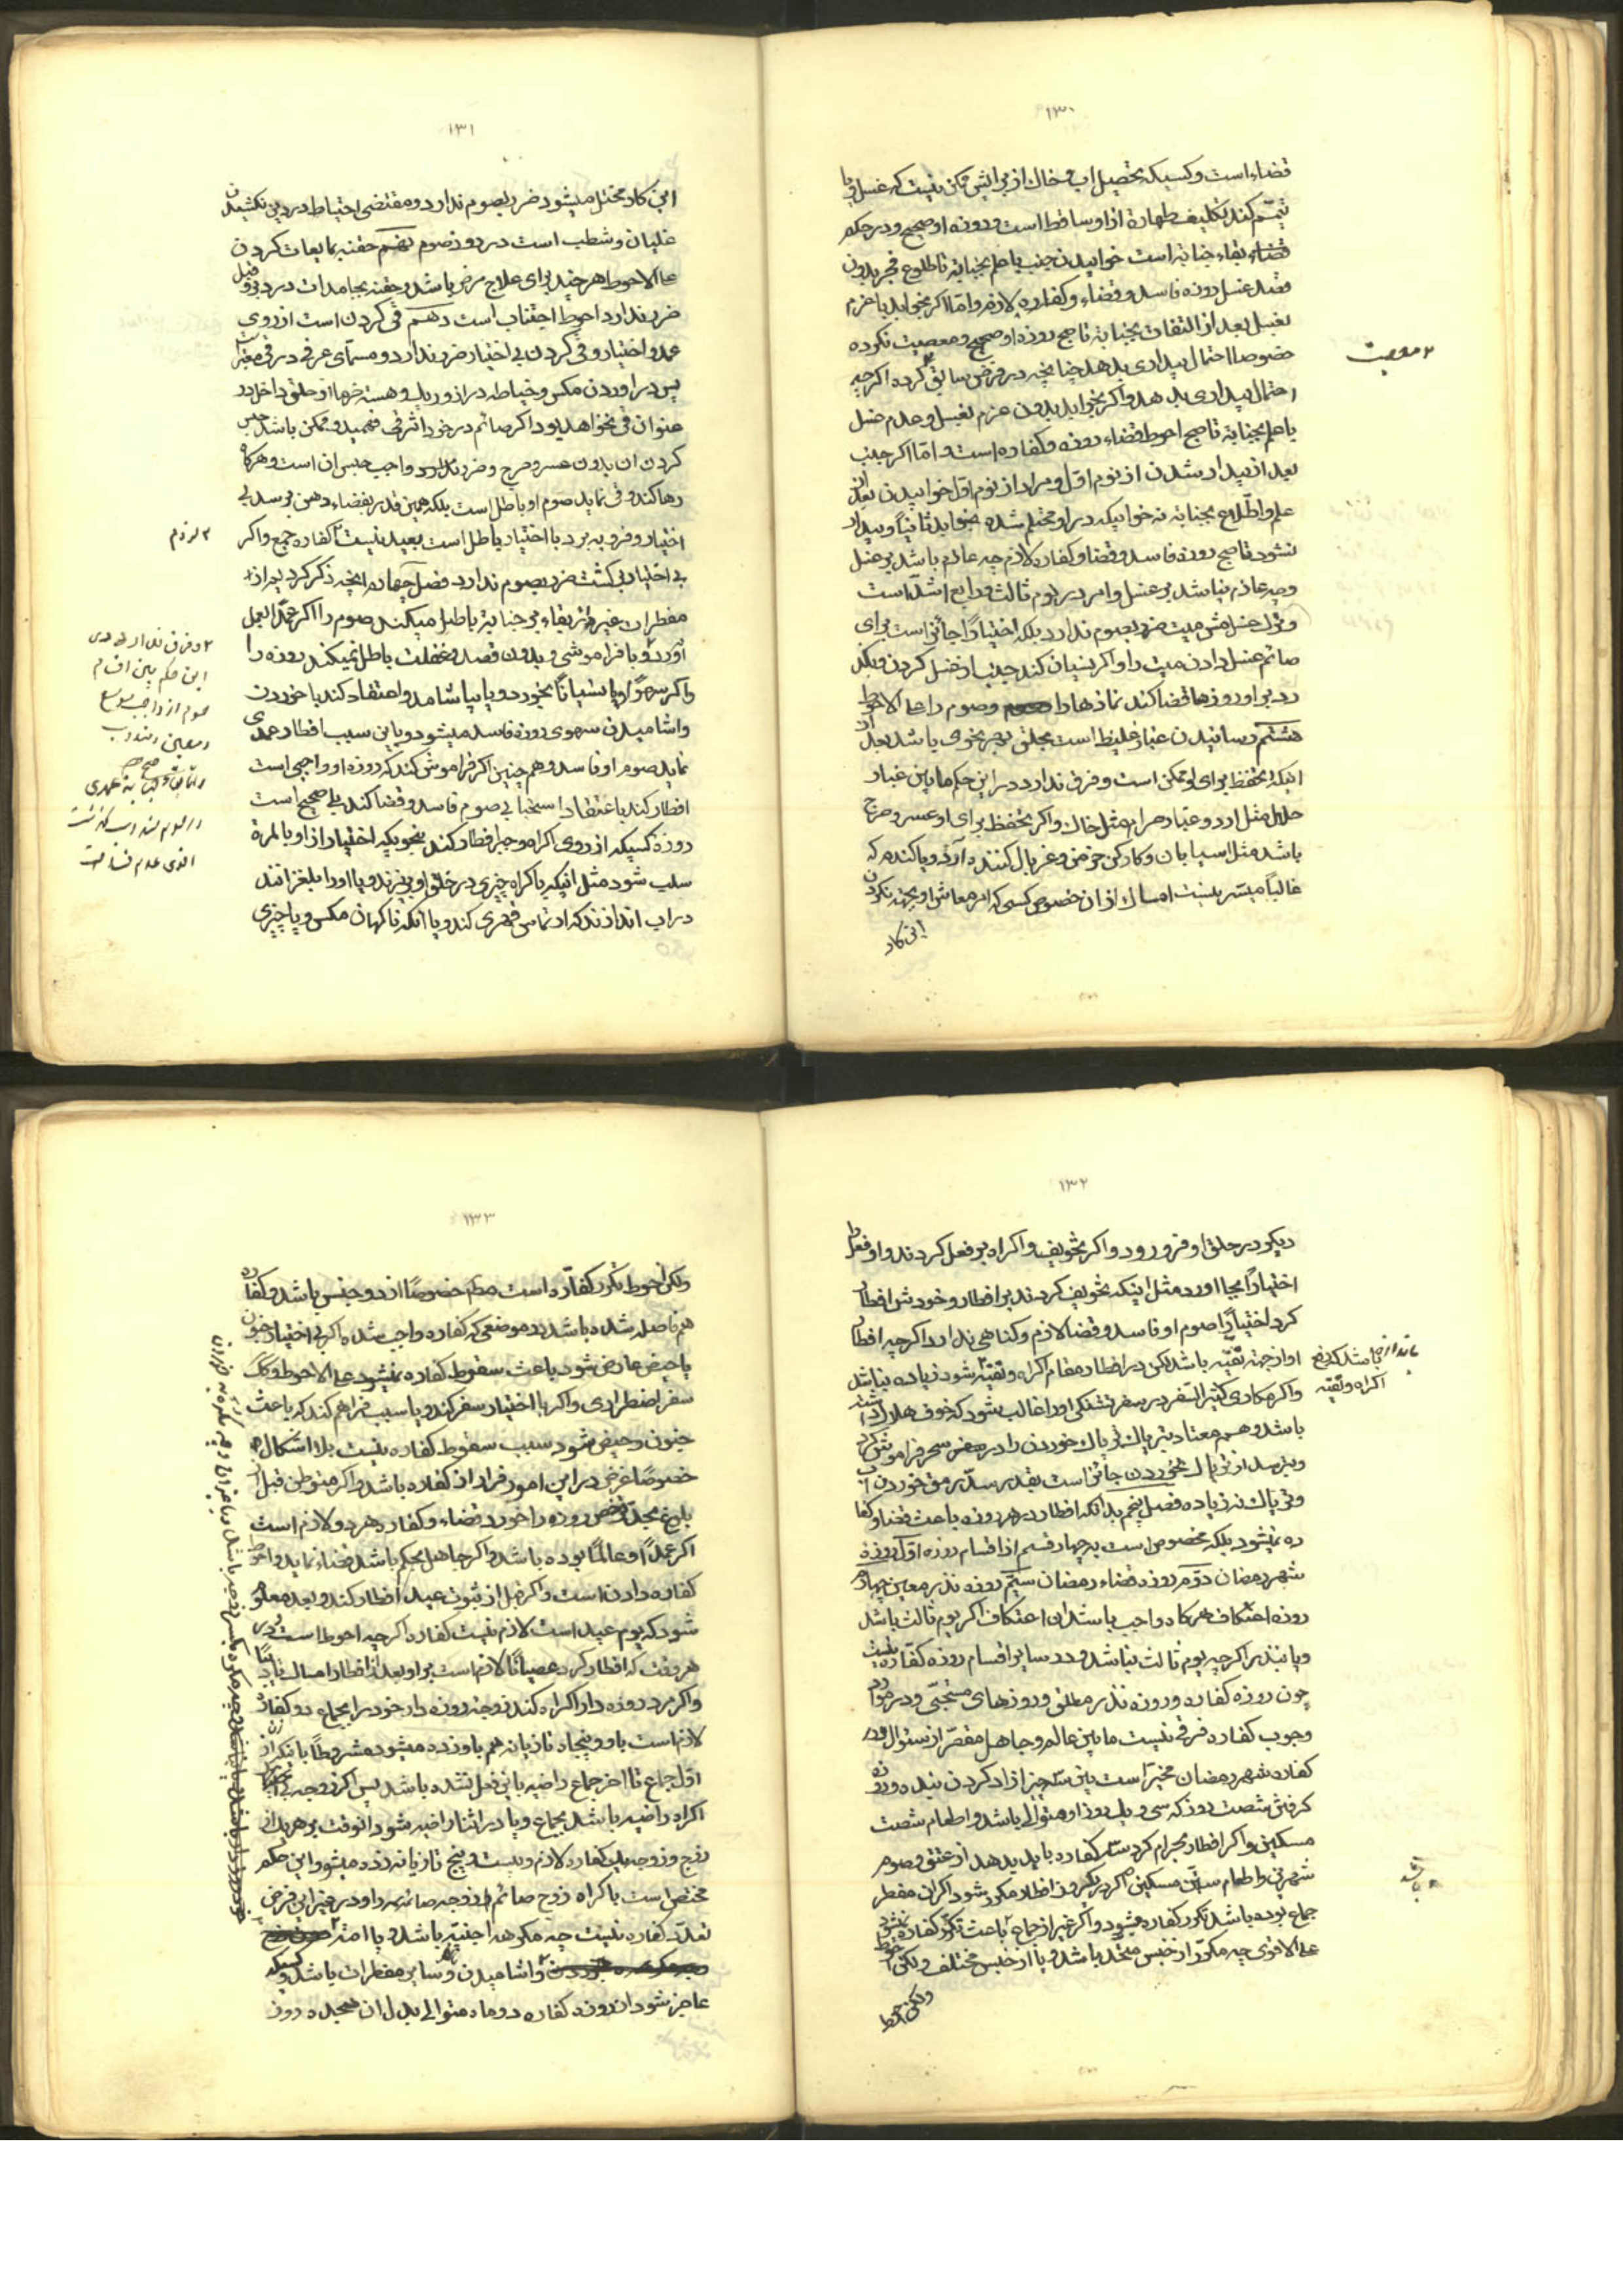 ۱۳۰
قضاء است و کسیکه تحصیل اب و خاک از برایش ممکن نیست که غسل و یا
تیمّم کند تکلیف طهارة از او ساقط است و روزه او صحیح و در حکم
بقاء جنابة است خوابیدن جنب با علم بجنابة تا طلوع فجر بدون
قصد غسل روزه فاسد و قضاء و کفاره لازم و امّا اکر بخوابد با عزم
بغسل بعد از التفات بجنابة تا صبح روزه او صحیح و معصیت نکرده
خصوصا احتمال بیداری بدهد چنانچه در فرض سابق کرده اکرچه
احتمال بیداری بدهد و اکر بخوابد بدون عزم بغسل و عدم غسل
با علم بجنابة تا صبح احوط قضاء روزه و کفاره است و امّا اکر جنب
بعد از بیدار شدن از نوم اوّل و مراد از نوم اوّل خوابیدن بعد از
علم و اطّلاع بجنابة نه خوابیکه در او محتلم شده بخوابد ثانیاً و بیدار
نشود تا صبح روزه فاسد و قضا و کفاره لازم چه عازم باشد بر غسل
و چه عازم نباشد بر غسل و امر در نوم ثالث و رابع اشدّ است
و ترک غسل مسّ میت ضرر بصوم ندارد بلکه اختیاراً جائز است برای
صائم غسل دادن میت را و اکر نسیان کند جنب از غسل کردن و بگذ
رد بر او روزها قضا کند نمازها را و صوم را علی الاحوط
هشتم رسانیدن غبار غلیظ است بحلق بهر نحوی باشد بعد از
اینکه تحفظ برای او ممکن است و فرق ندارد در این حکم مابین غبار
حلال مثل ارد و غبار حرام مثل خاک و اکر تحفظ برای او عسر و حرج
باشد مثل اسیابان و کارکن خرمن و غربال کننده آرد و یا کندم که
غالباً میسّر نیست امساک از ان خصوص کسی که امر معاش او بجهة نکردن
این کار
۱۳۱
این کار مختل میشود ضرر بصوم ندارد و مقتضی احتیاط در دین نکشیدن
غلیان و شطب است در روز صوم نهم حقنه بمایعات کردن
علی الاحوط هر چند برای علاج مرض باشد و حقنه بجامدات در دبر و قبل
ضرر ندارد احوط اجتناب است دهم قی کردن است از روی
عمد و اختیار و قی کردن بی اختیار ضرر ندارد و مسمّای عرفی در قی معتبر است
پس در اوردن مکس و خیاطه دراز و ریک و هسته خرما از حلق داخل در
عنوان قی نخواهد بود اکر صائم در خود اثر قی فهمید و ممکن باشد حبس
کردن ان بدون عسر و حرج و ضرر ندارد واجب حبس ان است و هرکاه
رها کند و قی نماید صوم او باطل است بلکه همین قدر بفضاء دهن برسد بی
اختیار و فرو به برد با اختیار باطل است بعید نیست کفاره جمع و اکر
بی اختیار بر کشت ضرر بصوم ندارد فصل چهارم انچه ذکر کردیم از
مفطرات غیر از بقاء بر جنابة باطل میکند صوم را اکر عمدا بعمل
آورد و با فراموشی و بدون قصد و غفلت باطل نمیکند روزه را
و اکر سهواً و یا نسیاناً بخورد و یا بیاشامد و اعتقاد کند با خوردن
و اشامیدن سهوی روزه فاسد میشود و باین سبب افطار عمدی
نماید صوم او فاسد و هم چنین اکر فراموش کند که روزه او واجبی است
افطار کند باعتقاد استحبابی صوم فاسد و قضا کند بلی صحیح است
روزه کسیکه از روی اکراه و جبر افطار کند بنحویکه اختیار از او بالمرة
سلب شود مثل اینکه باکراه چیزی در حلق او بریزند و یا او را بلغزانند
در اب اندازند که ارتماس قهری کند و یا انکه ناکهان مکس و یا چیزی
۱۳۲
دیکر در حلق او فرو رود و اکر بتخویف و اکراه بر فعل کردند و او فعل را
اختیاراً بجا اورد مثل اینکه تخویف کردند بر افطار و خودش افطار
کرد اختیاراً صوم او فاسد و قضا لازم و کناهی ندارد اکرچه افطار
او از جهة تقیّه باشد لکن در افطار مقام اکراه و تقیّه شود زیاده نباشد
باندازه باشد که دفع
اکراه و تقیّه
و اکر مکاری کثیر السّفر در سفر تشنکی او را غالب شود که خوف هلاک داشته
باشد و هم معتاد بتریاک تریاک خوردن را در سحر فراموش کرد
و بترسد از تریاک نخوردن جائز است بقدر سدّ رمق خوردن آب
و تریاک نه زیاده فصل پنجم بدانکه افطار در هر روزه باعث قضا و کفا
ره نمیشود بلکه مخصوص است بچهار قسم از اقسام روزه اوّل روزه
شهر رمضان دوّم روزه قضاء رمضان سیّم روزه نذر معیّن چهارم
روزه اعتکاف هرکاه واجب باشد ان اعتکاف اکر یوم ثالث باشد
و یا بنذر اکرچه یوم ثالث نباشد و در سایر اقسام روزه کفّاره نیست
چون روزه کفاره و روزه نذر مطلق و روزهای مستحبّی و در موارد
وجوب کفاره فرقی نیست مابین عالم و جاهل مقصّر از سئوال و در
کفاره شهر رمضان مخیّر است بین سه چیز ازاد کردن بنده و روزه
کرفتن شصت روز که سی و یک روز او متوالی باشد و اطعام شصت
مسکین و اکر افطار بحرام کرد سه کفاره باید بدهد از عتق و صوم
شهرین و اطعام ستّین مسکین اکر در یکروز افطار مکرر شود اکر ان مفطر
جماع بوده باشد تکرر کفاره میشود و اکر غیر از جماع باعث تکرّر کفاره نمیشود
علی الاقوی چه مکرّر از جنس متحد باشد و یا از جنس مختلف و لکن احوط
و لکن احوط
۱۳۳
و لکن احوط تکرر کفاره است خصوصاً از دو جنس باشد و کفاره
هم فاصله شده باشد در موضعی که کفاره واجب شده اکر بی اختیار جنون
یا حیض عارض شود باعث سقوط کفاره نمیشود علی الاحوط و کک
سفر اضطراری و اکر با اختیار سفر کند و یا سبب فراهم کند که باعث
جنون و حیض شود سبب سقوط کفاره نیست بلا اشکال
خصوصاً غرض در این امور فرار از کفاره باشد و اکر متوطن قبل از
بلوغ بحدّ ترخّص روزه را خورد قضاء و کفاره هر دو لازم است
اکر عمداً و عالماً بوده باشد و اکر جاهل بحکم باشد قضاء نماید و احوط
کفاره دادن است و اکر قبل از ثبوت عید افطار کند و بعد معلوم
شود که یوم عید است لازم نیست کفاره اکرچه احوط است
هر وقت که افطار کرد عصیاناً لازم است بر او بعد از افطار امساک
و اکر مرد روزه دار اکراه کند زوجه روزه دار خود را بجماع دو کفاره
لازم است باو و پنجاه تازیانه هم باو زده میشود مشروطاً بانکه از
اوّل جماع تا اخر جماع راضیه باین فعل نشده باشد پس اکر زوجه
اکراه راضیه باشد بجماع و یا در اثناء راضیه شود انوقت بر هر یک از
زوج و زوجه یک کفاره لازم و بیست و پنج تازیانه زده میشود و این حکم
مختص است باکراه زوج صائم زوجه صائمه را و در غیر این فرض
تعدّد کفاره نیست چه مکرهه اجنبیّه باشد و یا امة
و اشامیدن و سایر مفطرات باشد و کسیکه
عاجز شود از روزه کفاره دو ماه متوالی بدل ان هجده روز